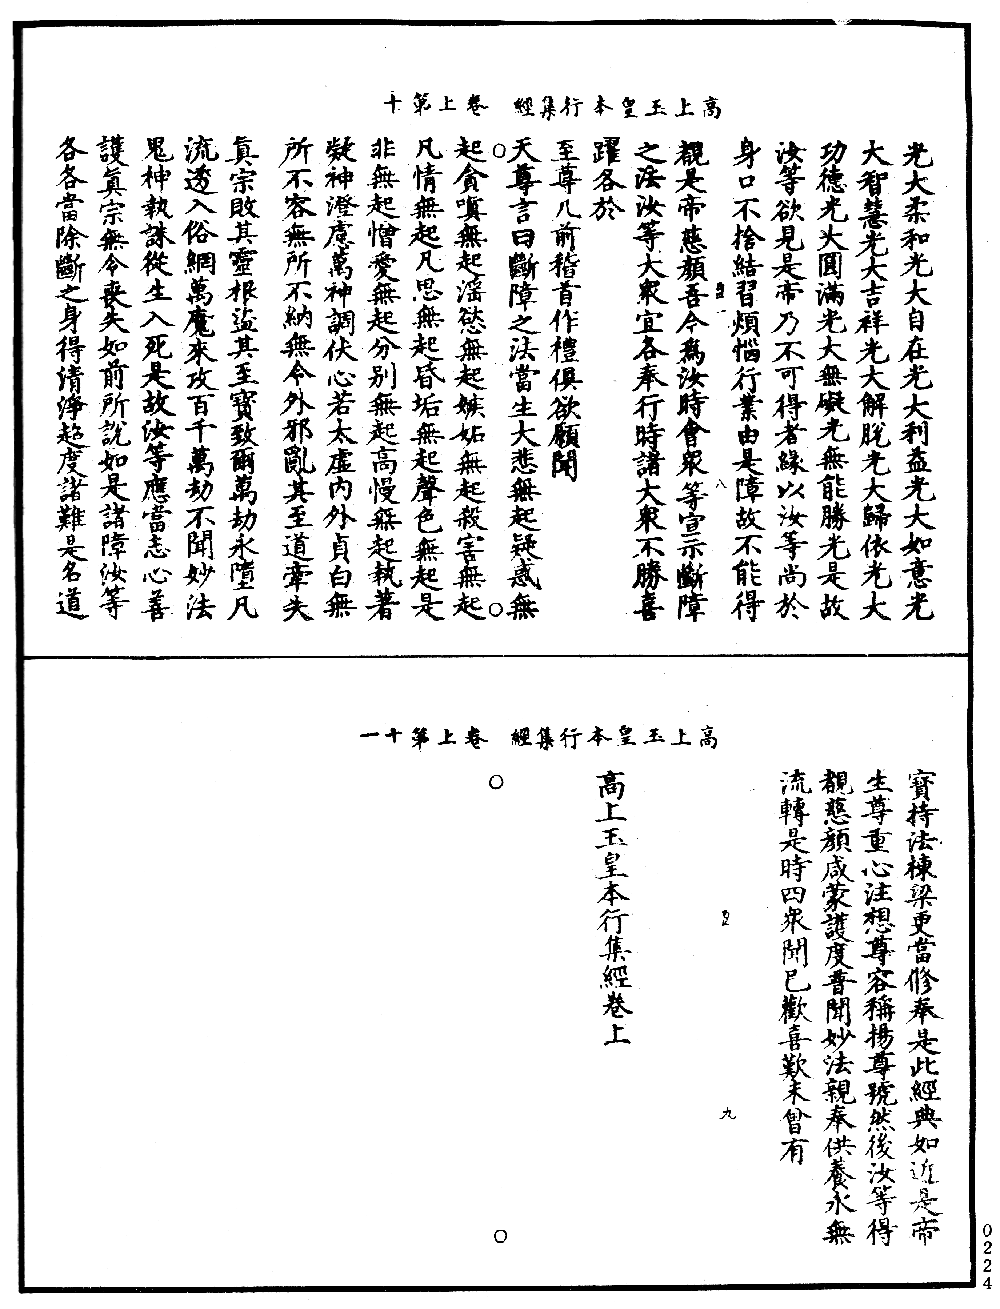 高上玉皇本行集經　卷上第十
光大柔和光大自在光大利益光大如意光
大智慧光大吉祥光大解脫光大歸依光大
功德光大圓滿光大無礙光無能勝光是故
汝等欲見是帝乃不可得者緣以汝等尚於
身口不捨結習煩惱行業由是障故不能得
八
覩是帝慈顏吾今爲汝時會衆等宣示斷障
之法汝等大衆宜各奉行時諸大衆不勝喜
躍各於
至尊几前稽首作禮俱欲願聞
天尊言曰斷障之法當生大悲無起疑惑無
起貪嗔無起淫慾無起嫉妬無起殺害無起
凡情無起凡思無起昏垢無起聲色無起是
非無起憎愛無起分別無起高慢無起執著
凝神澄慮萬神調伏心若太虛內外貞白無
所不容無所不納無令外邪亂其至道牽失
眞宗敗其靈根盜其至寶致爾萬劫永墮凡
流透入俗網萬魔來攻百千萬劫不聞妙法
鬼神執誅從生入死是故汝等應當志心善
護眞宗無令喪失如前所說如是諸障汝等
各各當除斷之身得清淨超度諸難是名道
高上玉皇本行集經　卷上第十一
寶持法棟梁更當修奉是此經典如近是帝
生尊重心注想尊容稱揚尊號然後汝等得
覩慈顏咸蒙護度普聞妙法親奉供養永無
流轉是時四衆聞已歡喜歎未曾有
九
高上玉皇本行集經卷上
0224